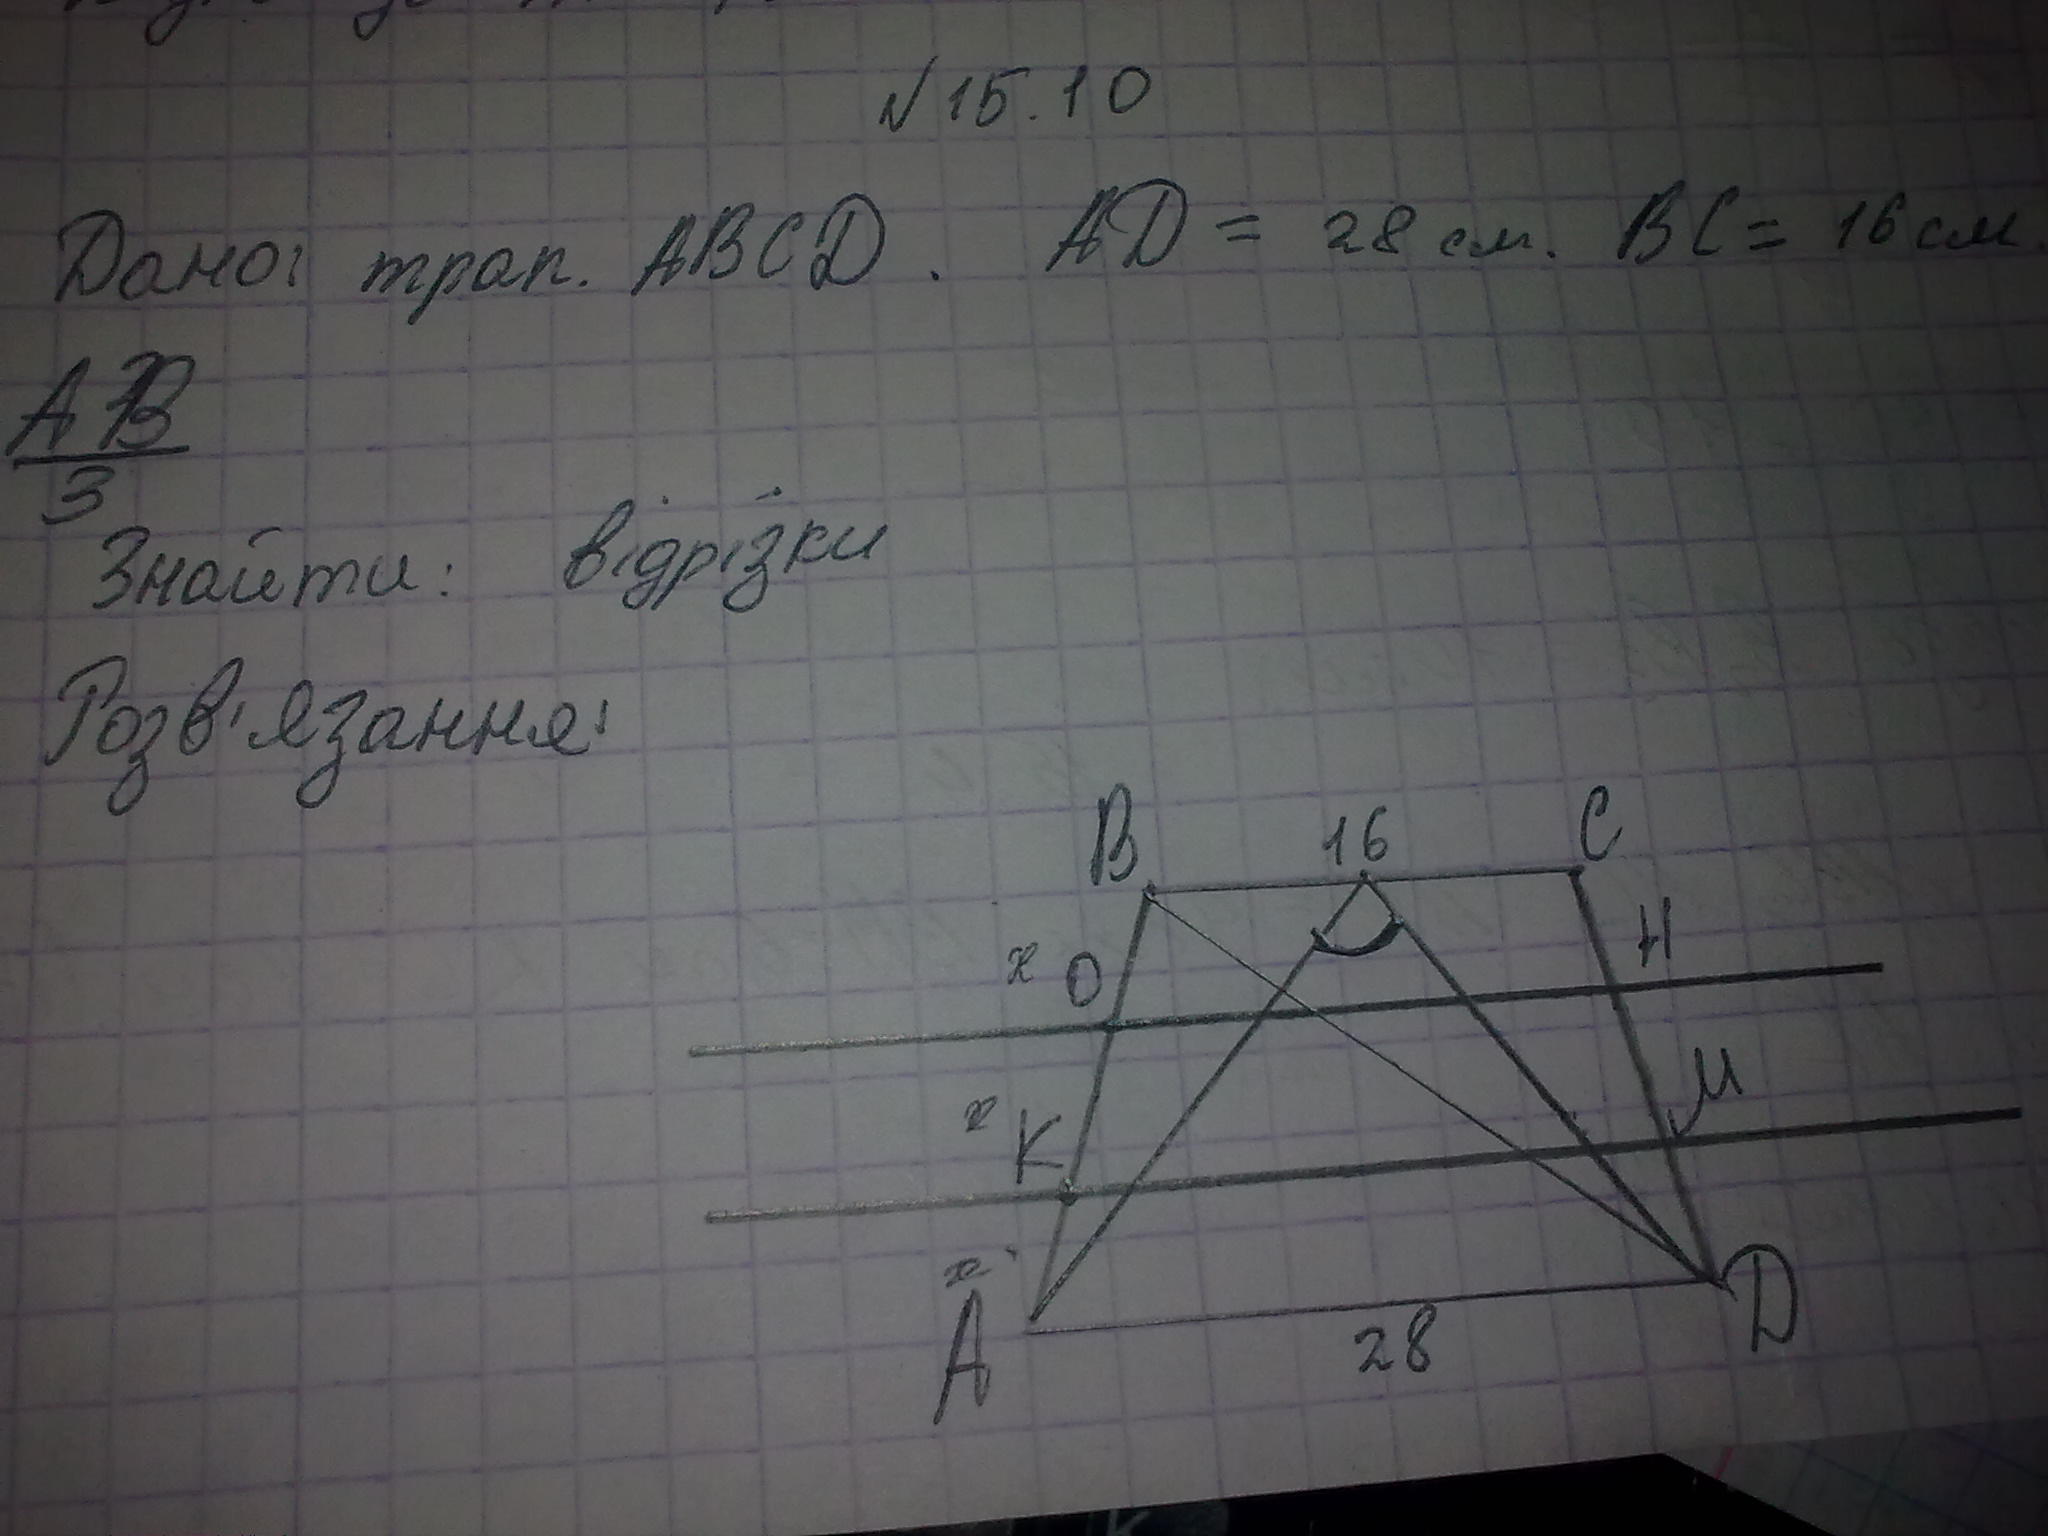 №15.10
Дано: трап. ABCD. AD = 28 см. BC = 16 см.
AB
3
Знайти: відрізки
Розв'язання:
B 16 C
x O H
x K M
x A 28 D
K